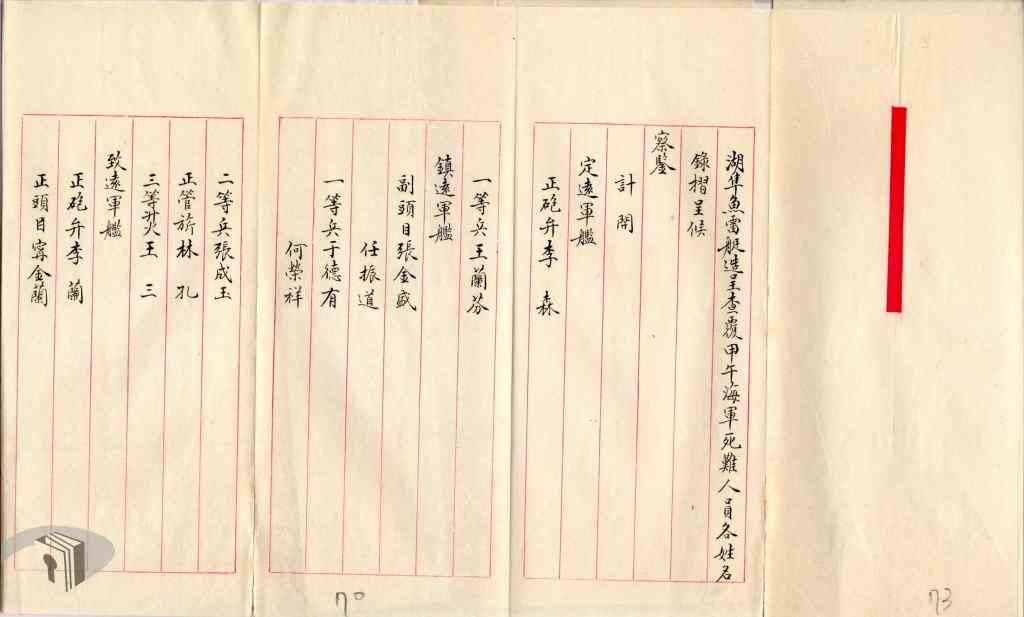 湖隼魚雷艇造呈查覆甲午海軍死難人員各姓名
錄摺呈候
察鑒
計開
定遠軍艦
正砲弁李森
一等兵王蘭芬
鎮遠軍艦
副頭目張金盛
任振道
一等兵于德有
何榮祥
二等兵張成玉
正管旂林孔
三等升火王三
致遠軍艦
正砲弁李蘭
正頭目寗金蘭
70
73